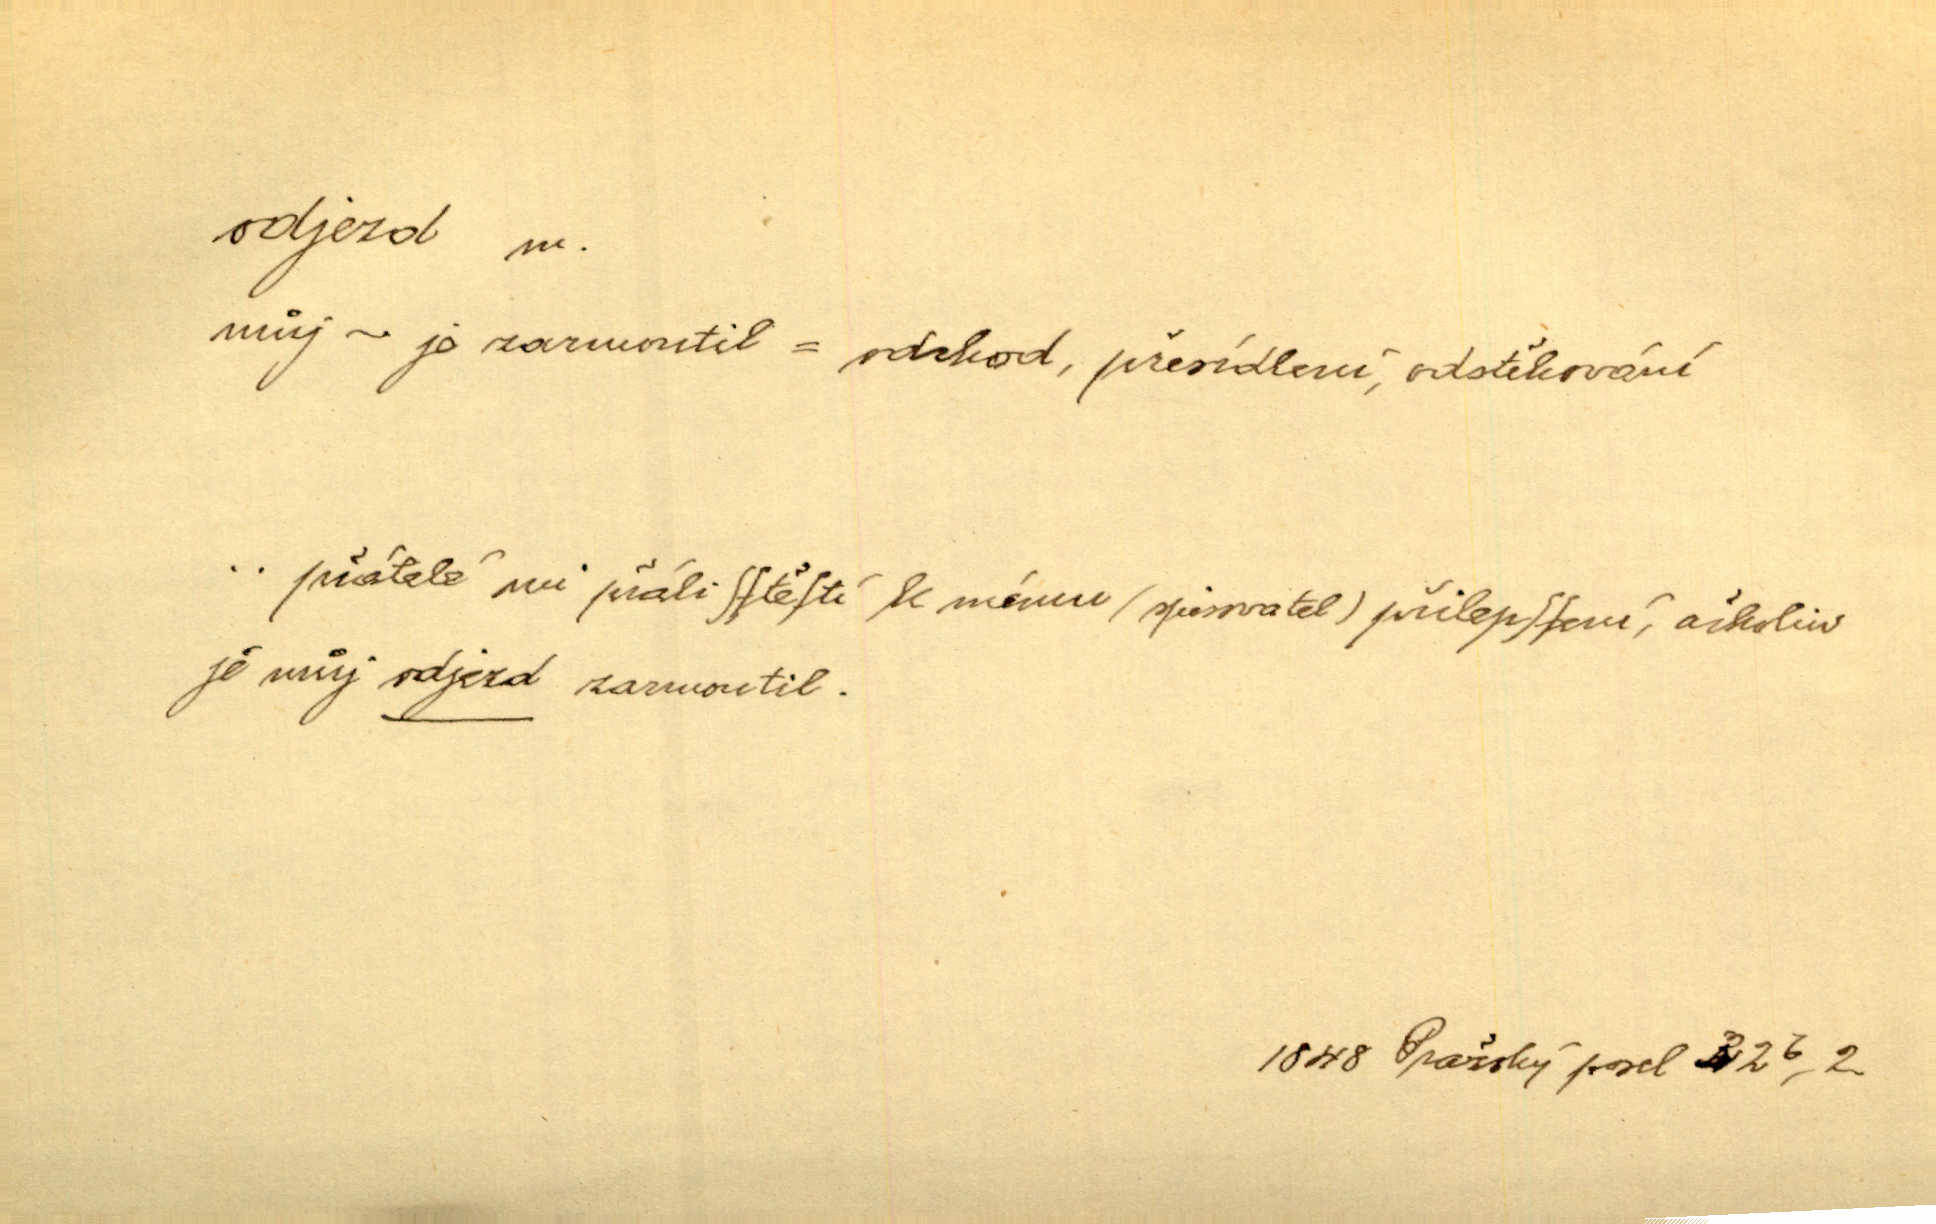 odjezd m.
můj ~ jé zarmoutil = odchod, přesídlení, odstěhování
.. přátelé mi přáli ſſtěſtí k mému (spisovatel) přilepſſení, ačkoliw
jé můj odjezd zarmoutil.
1848 Pražský posel 2 6, 2